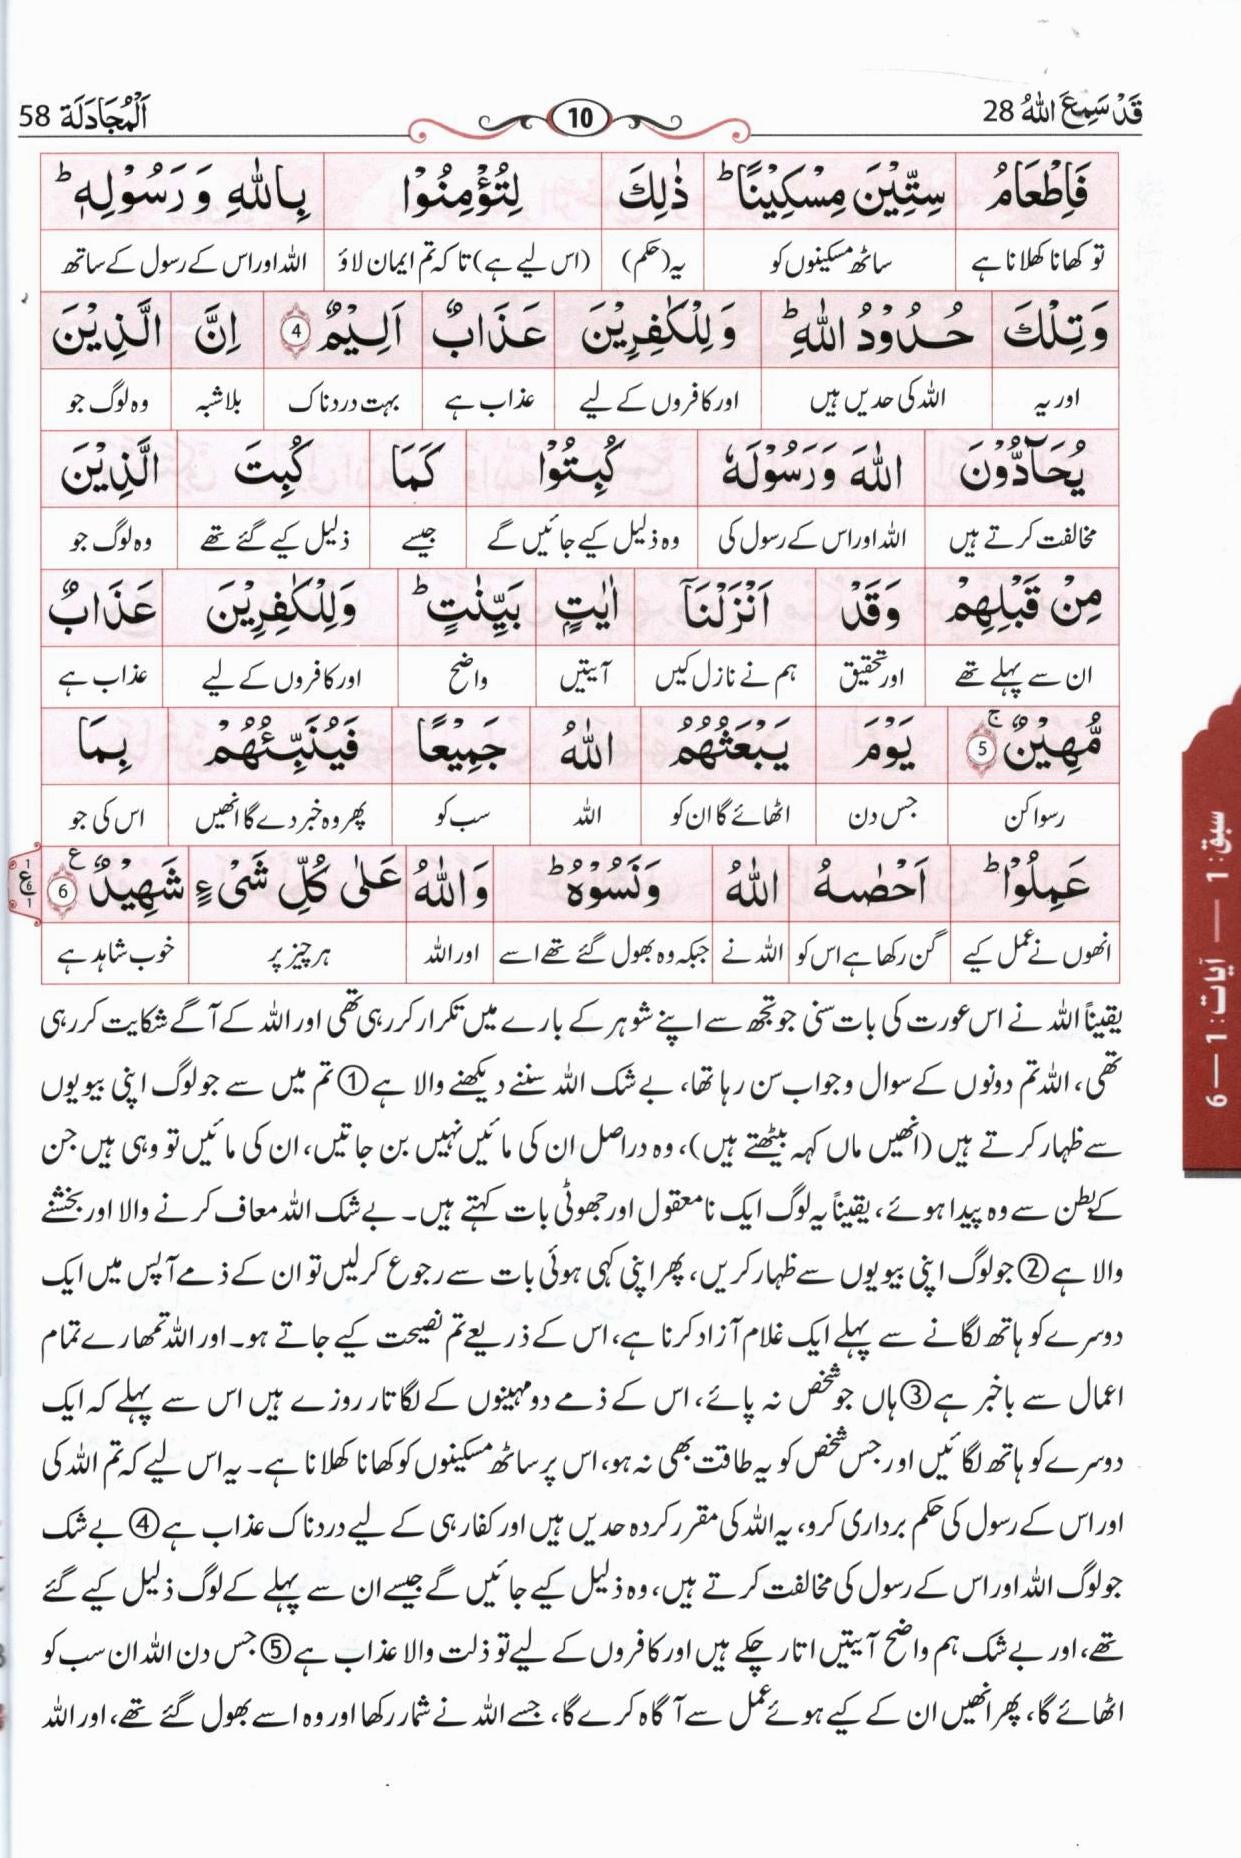 قَدْ سَمِعَ اللّٰهُ 28
10
اَلْمُجَادَلَة 58
فَاِطْعَامُ سِتِّيْنَ مِسْكِيْنًا ؕ ذٰلِكَ لِتُؤْمِنُوْا بِاللّٰهِ وَ رَسُوْلِهٖ ؕ
تو کھانا کھلانا ہے ساٹھ مسکینوں کو یہ (حکم) (اس لیے ہے) تاکہ تم ایمان لاؤ اللہ اور اس کے رسول کے ساتھ
وَ تِلْكَ حُدُوْدُ اللّٰهِ ؕ وَ لِلْكٰفِرِيْنَ عَذَابٌ اَلِيْمٌ 4 اِنَّ الَّذِيْنَ
اور یہ اللہ کی حدیں ہیں اور کافروں کے لیے عذاب ہے بہت دردناک بلاشبہ وہ لوگ جو
يُحَآدُّوْنَ اللّٰهَ وَ رَسُوْلَهٗ كُبِتُوْا كَمَا كُبِتَ الَّذِيْنَ
مخالفت کرتے ہیں اللہ اور اس کے رسول کی وہ ذلیل کیے جائیں گے جیسے ذلیل کیے گئے تھے وہ لوگ جو
مِنْ قَبْلِهِمْ وَ قَدْ اَنْزَلْنَاۤ اٰيٰتٍۭ بَيِّنٰتٍ ؕ وَ لِلْكٰفِرِيْنَ عَذَابٌ
ان سے پہلے تھے اور تحقیق ہم نے نازل کیں آیتیں واضح اور کافروں کے لیے عذاب ہے
مُّهِيْنٌ ۚ 5 يَوْمَ يَبْعَثُهُمُ اللّٰهُ جَمِيْعًا فَيُنَبِّئُهُمْ بِمَا
رسوا کن جس دن اٹھائے گا ان کو اللہ سب کو پھر وہ خبر دے گا انھیں اس کی جو
عَمِلُوْا ؕ اَحْصٰىهُ اللّٰهُ وَ نَسُوْهُ ؕ وَ اللّٰهُ عَلٰى كُلِّ شَيْءٍ شَهِيْدٌ ع 6
انھوں نے عمل کیے گن رکھا ہے اس کو اللہ نے جبکہ وہ بھول گئے تھے اسے اور اللہ ہر چیز پر خوب شاہد ہے
یقیناً اللہ نے اس عورت کی بات سنی جو تجھ سے اپنے شوہر کے بارے میں تکرار کر رہی تھی اور اللہ کے آگے شکایت کر رہی
تھی، اللہ تم دونوں کے سوال و جواب سن رہا تھا، بے شک اللہ سننے دیکھنے والا ہے ① تم میں سے جو لوگ اپنی بیویوں
سے ظہار کرتے ہیں (انھیں ماں کہہ بیٹھتے ہیں)، وہ دراصل ان کی مائیں نہیں بن جاتیں، ان کی مائیں تو وہی ہیں جن
کے بطن سے وہ پیدا ہوئے، یقیناً یہ لوگ ایک نامعقول اور جھوٹی بات کہتے ہیں۔ بے شک اللہ معاف کرنے والا اور بخشنے
والا ہے ② جو لوگ اپنی بیویوں سے ظہار کریں، پھر اپنی کہی ہوئی بات سے رجوع کر لیں تو ان کے ذمے آپس میں ایک
دوسرے کو ہاتھ لگانے سے پہلے ایک غلام آزاد کرنا ہے، اس کے ذریعے تم نصیحت کیے جاتے ہو۔ اور اللہ تمھارے تمام
اعمال سے باخبر ہے ③ ہاں جو شخص نہ پائے، اس کے ذمے دو مہینوں کے لگاتار روزے ہیں اس سے پہلے کہ ایک
دوسرے کو ہاتھ لگائیں اور جس شخص کو یہ طاقت بھی نہ ہو، اس پر ساٹھ مسکینوں کو کھانا کھلانا ہے۔ یہ اس لیے کہ تم اللہ کی
اور اس کے رسول کی حکم برداری کرو، یہ اللہ کی مقرر کردہ حدیں ہیں اور کفار ہی کے لیے دردناک عذاب ہے ④ بے شک
جو لوگ اللہ اور اس کے رسول کی مخالفت کرتے ہیں، وہ ذلیل کیے جائیں گے جیسے ان سے پہلے کے لوگ ذلیل کیے گئے
تھے، اور بے شک ہم واضح آیتیں اتار چکے ہیں اور کافروں کے لیے تو ذلت والا عذاب ہے ⑤ جس دن اللہ ان سب کو
اٹھائے گا، پھر انھیں ان کے کیے ہوئے عمل سے آگاہ کرے گا، جسے اللہ نے شمار رکھا اور وہ اسے بھول گئے تھے، اور اللہ
سبق: 1 — آیات: 1—6